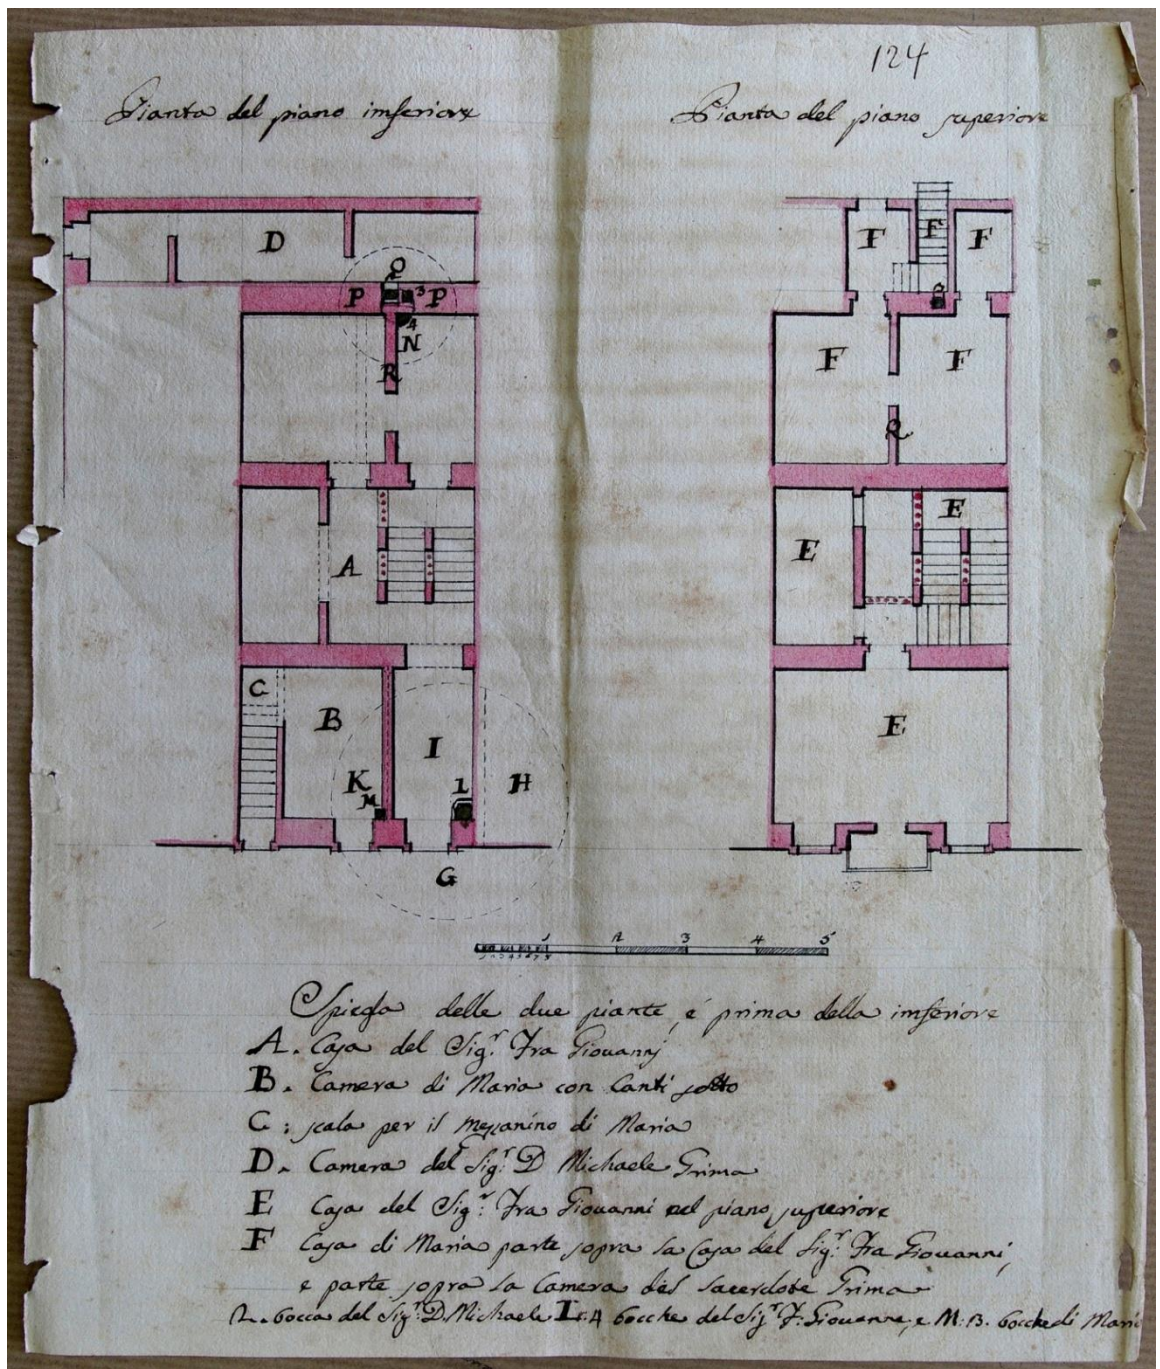 124
Pianta del piano imferiore
Pianta del piano superiore
D
Q
P 3 P
4
N
R
A
C
B
I
K
M
L
H
G
F F F
F F
E
E
E
1 2 3 4 5
Spiega delle due piante, é prima della imferiore
A. Casa del Sig.r Fra Giouannj
B. Camera di Maria con Canti sotto
C: scala per il mezanino di Maria
D. Camera del Sig.r D Michaele Grima
E Casa del Sig.r Fra Giouanni nel piano superiore
F Casa di Maria parte sopra la Casa del Sig.r Fra Giouanni,
e parte sopra la Camera del Sacerdote Grima
2. bocca del Sig.r D. Michaele L: 4 bocche del Sig.r F: Giouanne, e M: 3. bocche di Maria